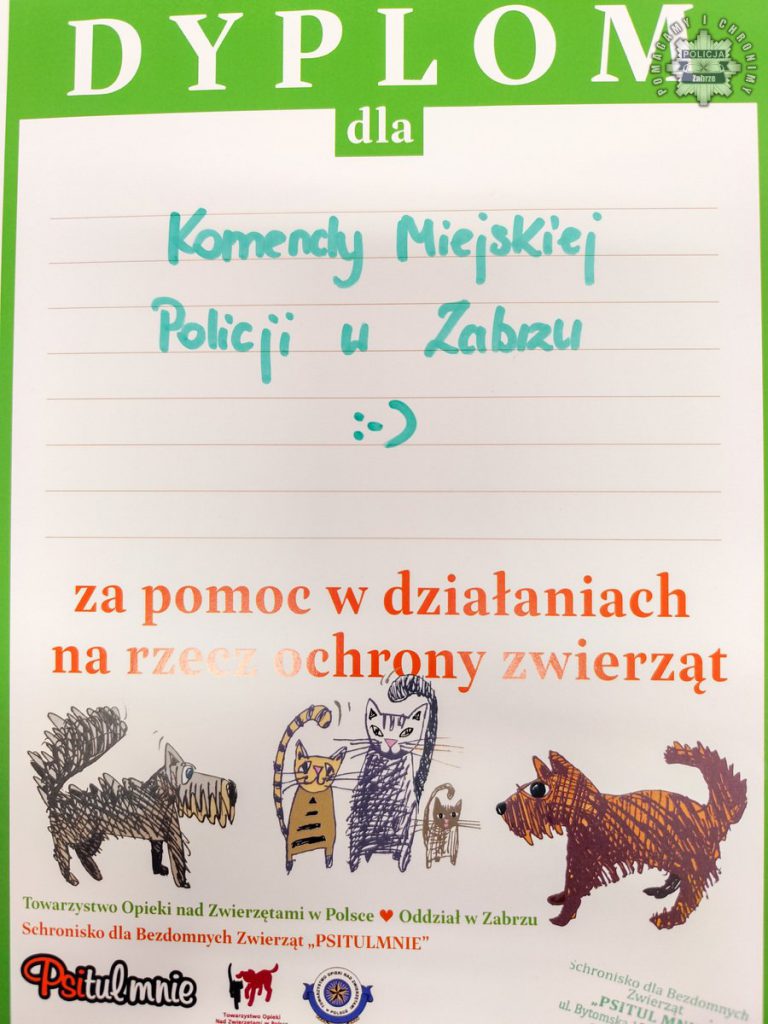 DYPLOM
POMAGAMY I CHRONIMY
POLICJA
Zabrze
dla
Komendy Miejskiej
Policji w Zabrzu
:-)
za pomoc w działaniach
na rzecz ochrony zwierząt
Towarzystwo Opieki nad Zwierzętami w Polsce ♥ Oddział w Zabrzu
Schronisko dla Bezdomnych Zwierząt „PSITULMNIE”
Psitulmnie
Towarzystwo Opieki
Nad Zwierzętami w Polsce
TOWARZYSTWO OPIEKI NAD ZWIERZĘTAMI
W POLSCE
Schronisko dla Bezdomnych
Zwierząt
„PSITUL MN
ul. Bytomska